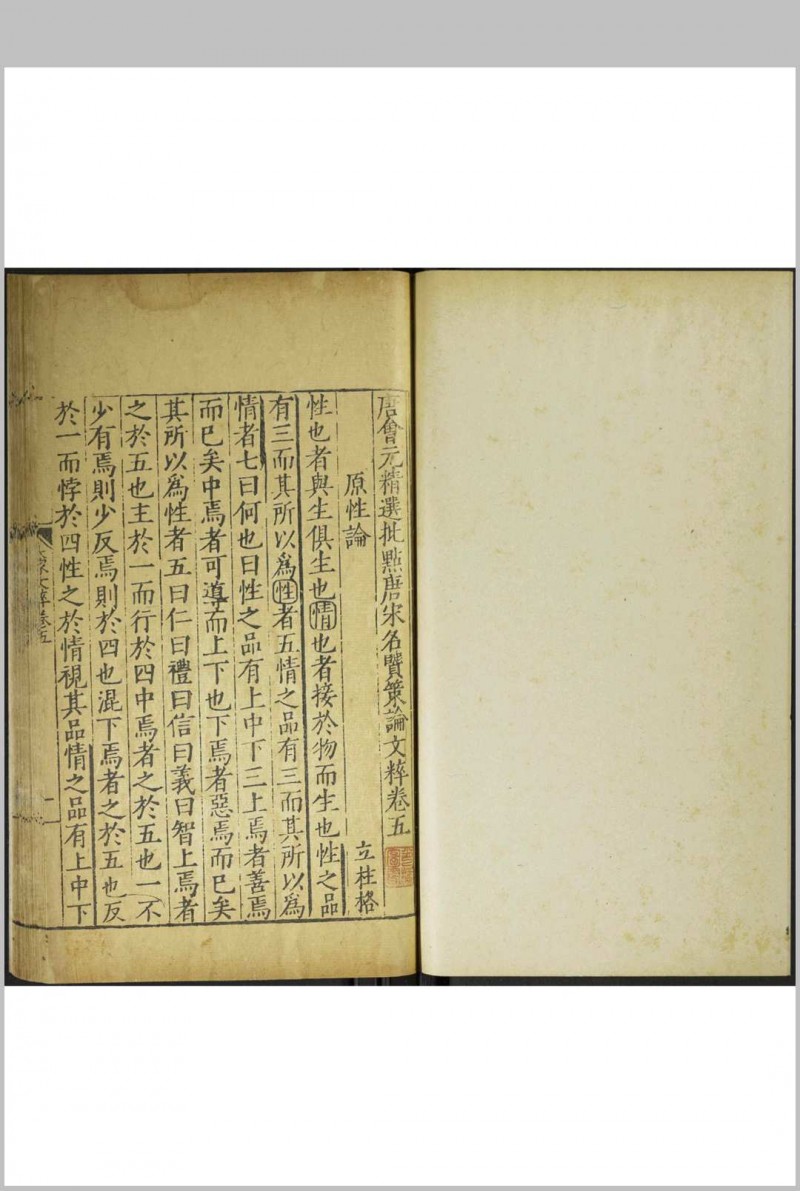 唐會元精選批點唐宋名賢策論文粹卷五
原性論
立柱格
性也者與生俱生也情也者接於物而生也性之品
有三而其所以爲性者五情之品有三而其所以爲
情者七曰何也曰性之品有上中下三上焉者善焉
而已矣中焉者可導而上下也下焉者惡焉而已矣
其所以爲性者五曰仁曰禮曰信曰義曰智上焉者
之於五也主於一而行於四中焉者之於五也一不
少有焉則少反焉則於四也混下焉者之於五也反
於一而悖於四性之於情視其品情之品有上中下
文粹卷五